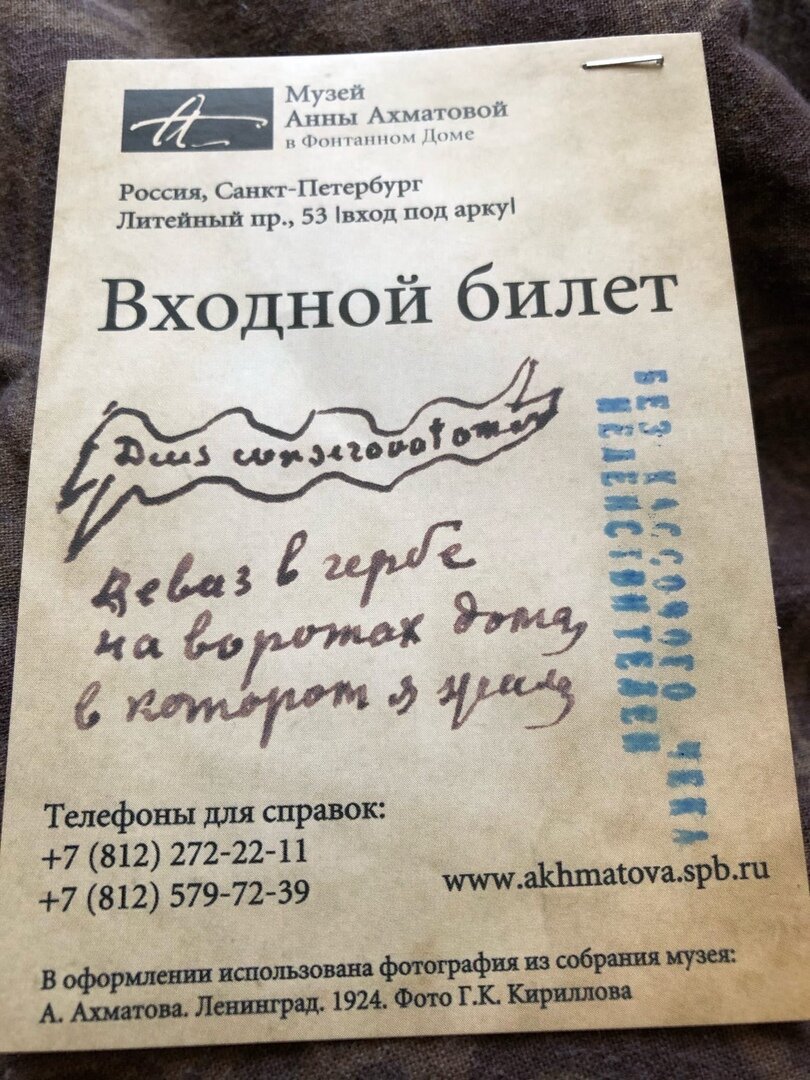 Музей
Анны Ахматовой
в Фонтанном Доме
Россия, Санкт-Петербург
Литейный пр., 53 |вход под арку|
Входной билет
Deus conservat omnia
девиз в гербе
на воротах дома,
в котором я жила
БЕЗ КАССОВОГО ЧЕКА
НЕДЕЙСТВИТЕЛЕН
Телефоны для справок:
+7 (812) 272-22-11
+7 (812) 579-72-39
www.akhmatova.spb.ru
В оформлении использована фотография из собрания музея:
А. Ахматова. Ленинград. 1924. Фото Г.К. Кириллова